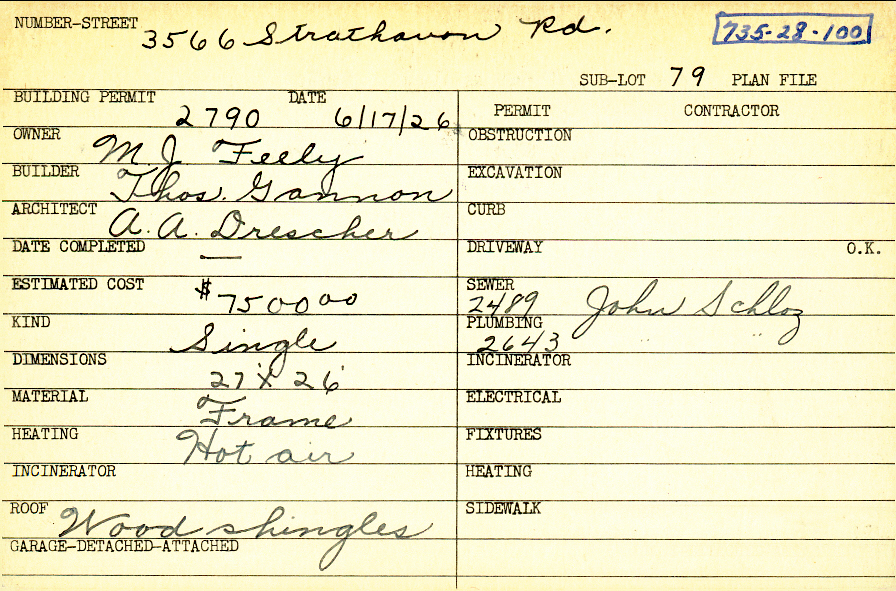 NUMBER-STREET 3566 Strathavon Rd. 735-28-100
SUB-LOT 79 PLAN FILE
BUILDING PERMIT 2790 DATE 6/17/26
OWNER M. J. Feely
BUILDER Thos. Gannon
ARCHITECT A. A. Drescher
DATE COMPLETED —
ESTIMATED COST $7500 00
KIND Single
DIMENSIONS 27' x 26'
MATERIAL Frame
HEATING Hot air
INCINERATOR
ROOF Wood shingles
GARAGE-DETACHED-ATTACHED
PERMIT CONTRACTOR
OBSTRUCTION
EXCAVATION
CURB
DRIVEWAY O.K.
SEWER 2489 John Schloz
PLUMBING 2643 " "
INCINERATOR
ELECTRICAL
FIXTURES
HEATING
SIDEWALK